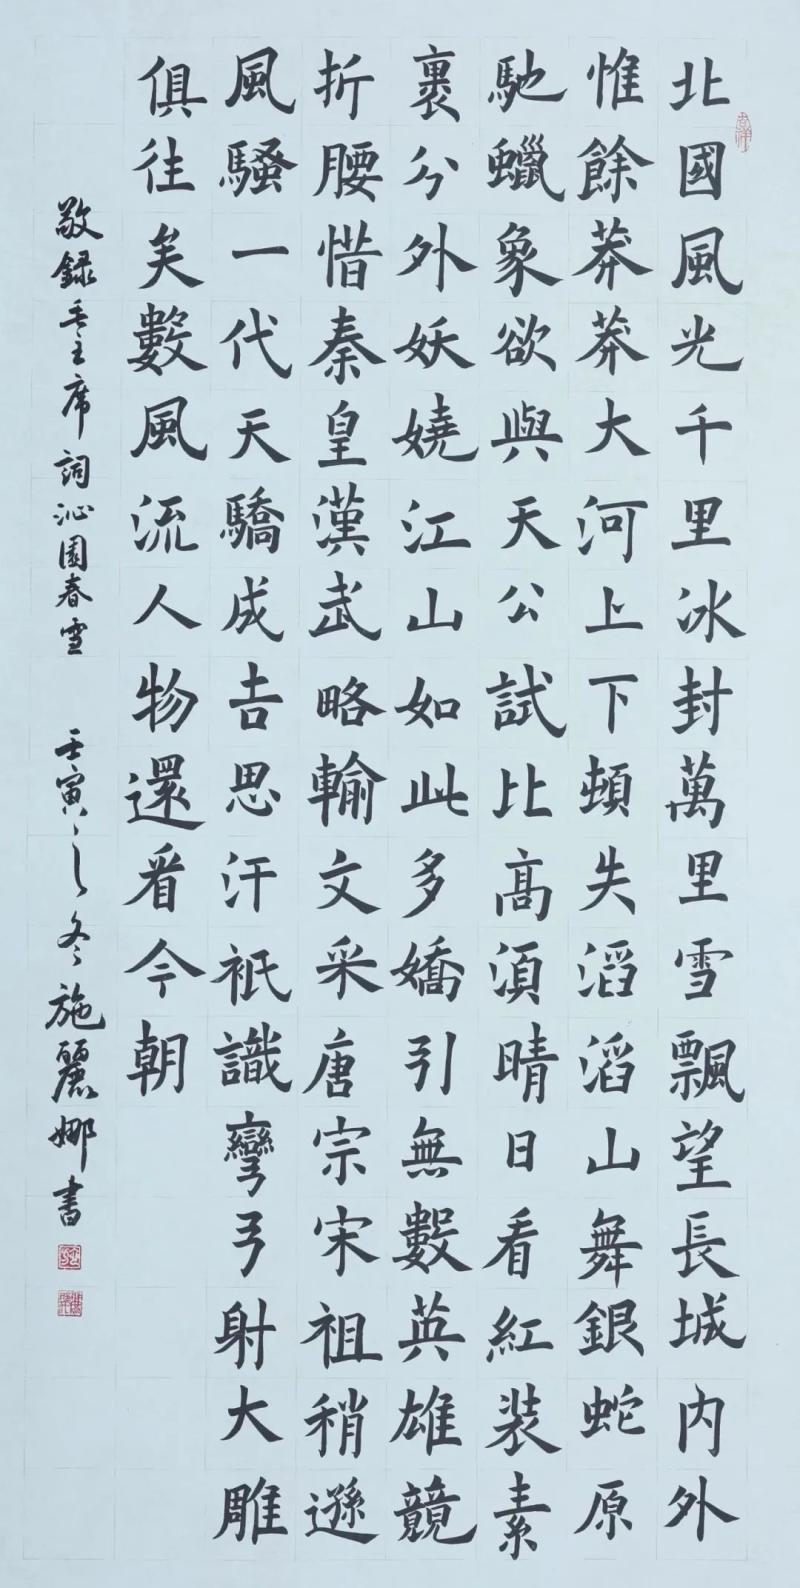 北國風光千里冰封萬里雪飄望長城内外
惟餘莽莽大河上下頓失滔滔山舞銀蛇原
馳蠟象欲與天公試比髙湏晴日看紅裝素
裹分外妖嬈江山如此多嬌引無數英雄競
折腰惜秦皇漢武略輸文采唐宗宋祖稍遜
風騷一代天驕成吉思汗祇識彎弓射大雕
俱往矣數風流人物還看今朝
敬録毛主席詞沁園春雪 壬寅之冬施麗娜書